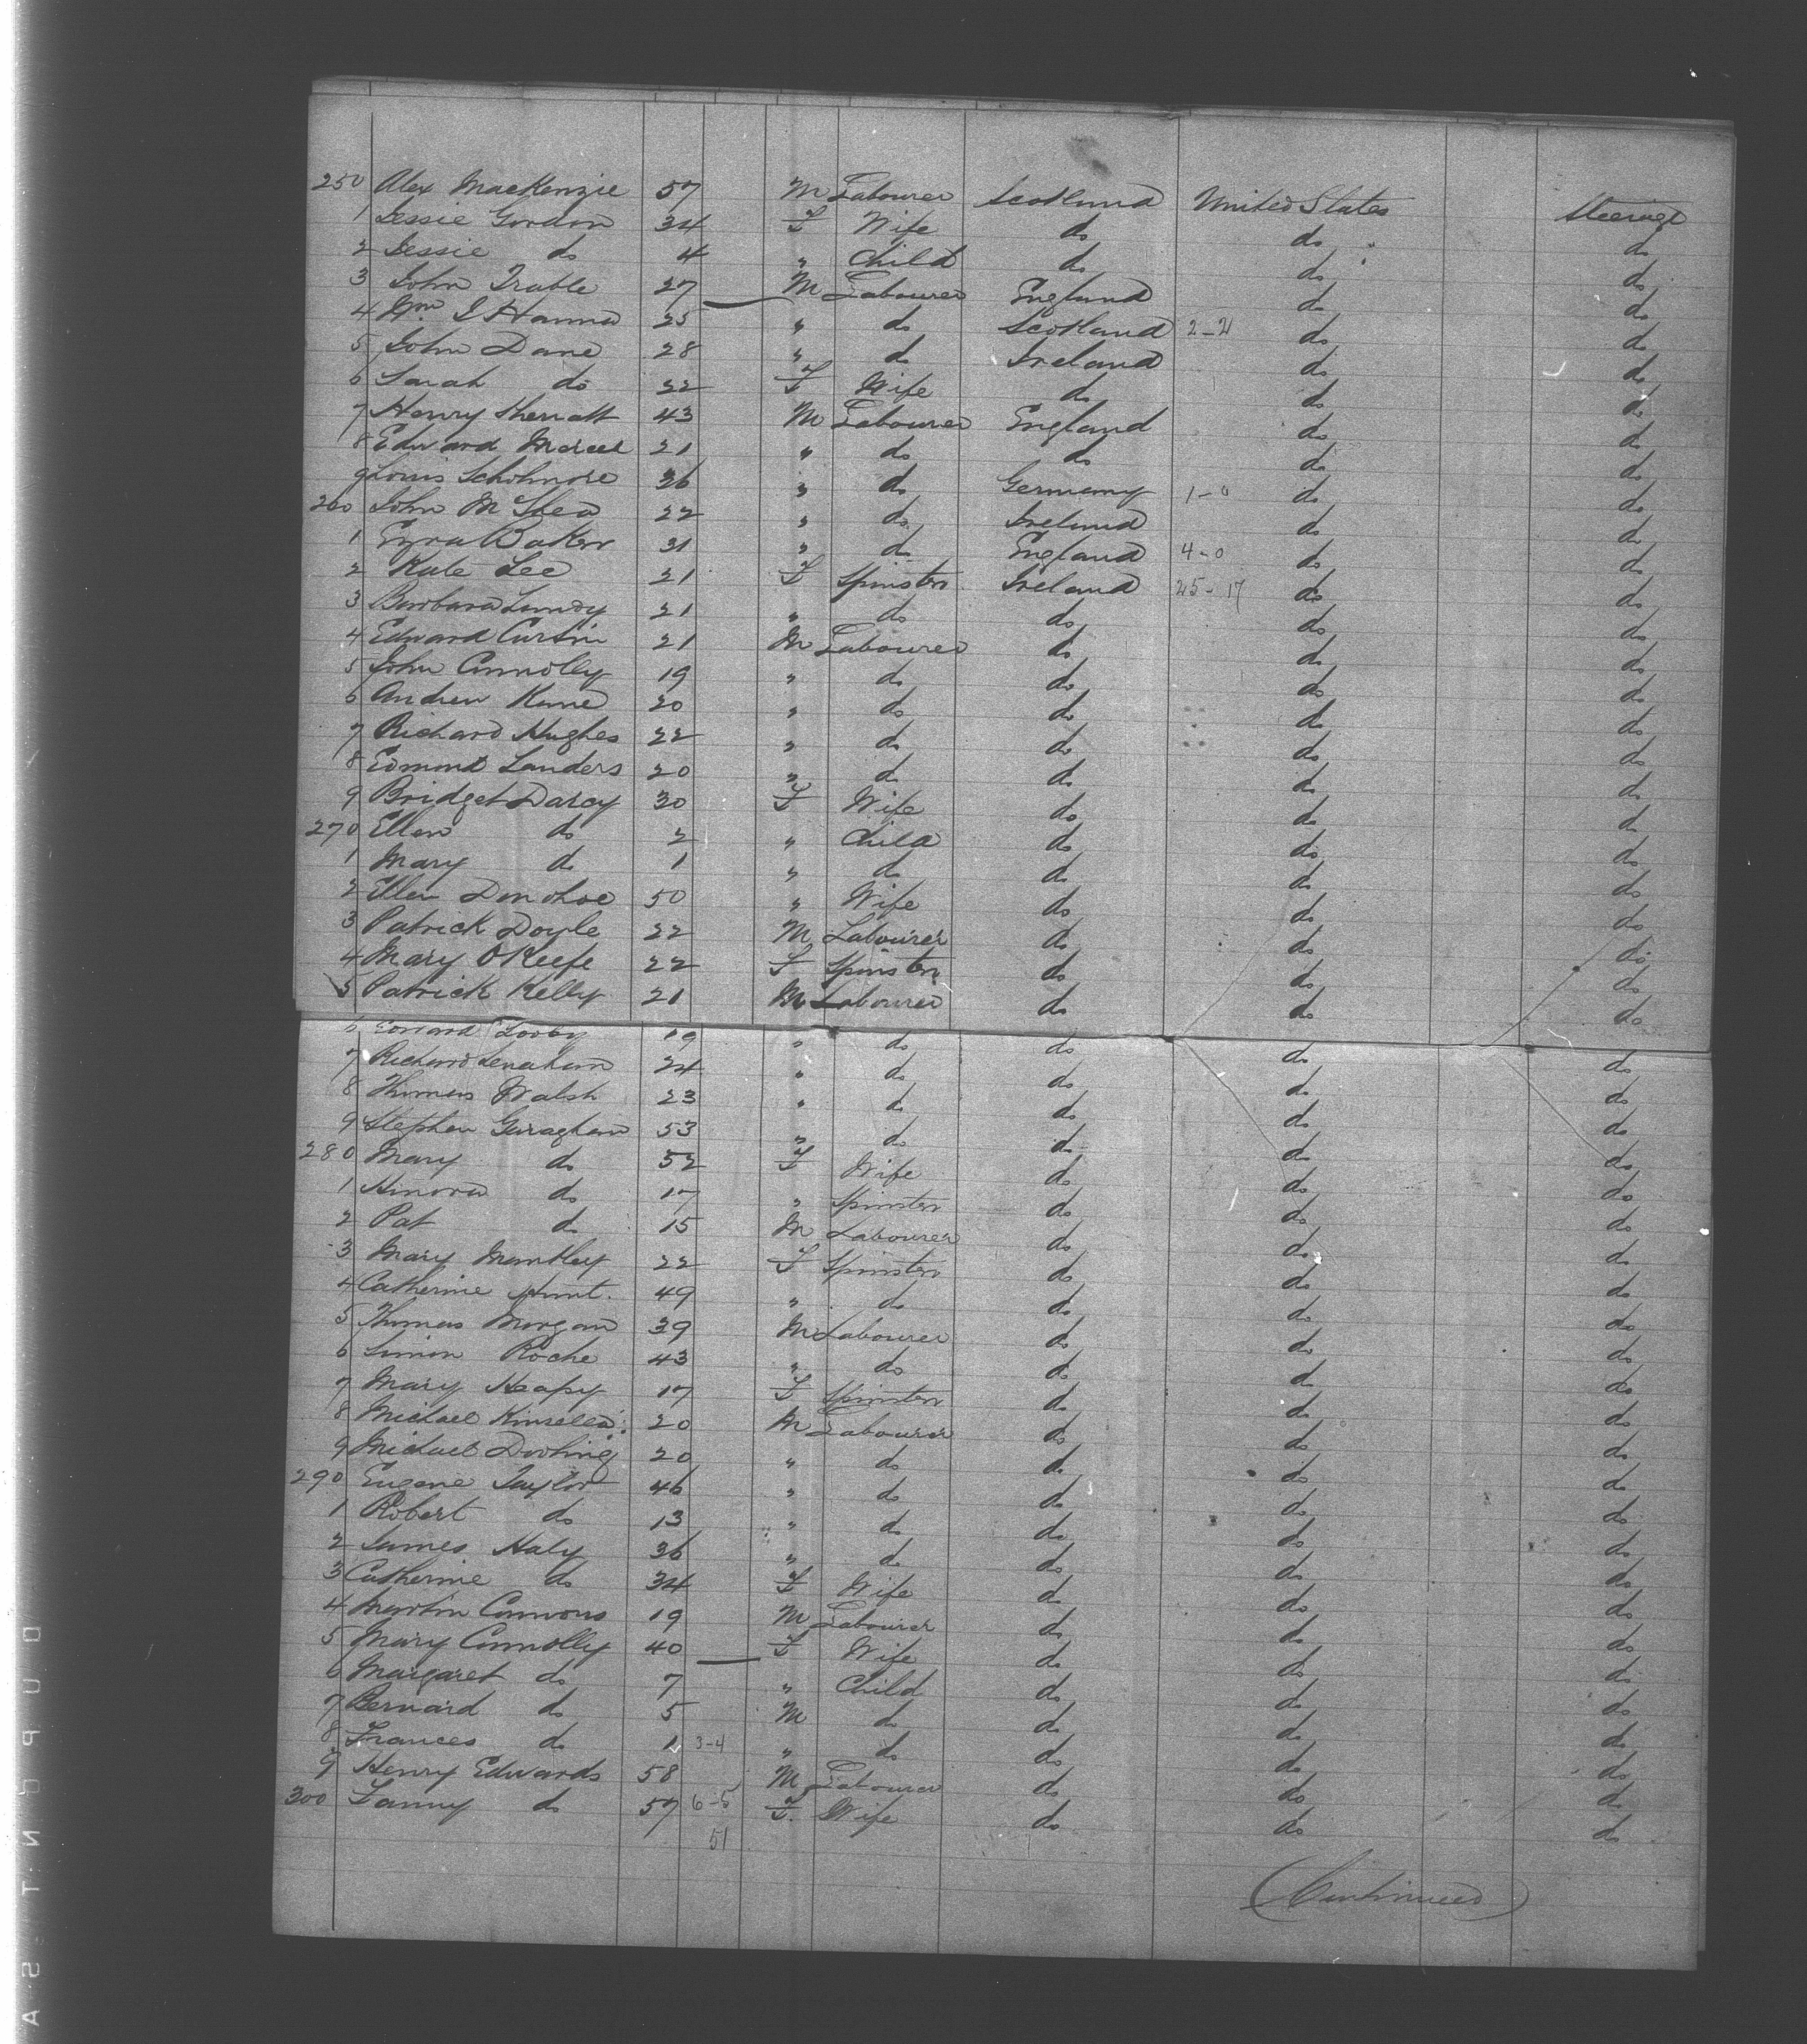 250 Alex MacKenzie 57 M Labourer Scotland United States Steerage
1 Jessie Gordon 34 F Wife do do do
2 Jessie do 4 " Child do do do
3 John Trable 27 M Labourer England do do
4 Wm J Hanna 25 " do Scotland 2-2 do do
5 John Dane 28 " do Ireland do do
6 Sarah do 22 F Wife do do do
7 Henry Sherratt 43 M Labourer England do do
8 Edward 21 " do do do do
9 Louis Scholmore 36 " do Germany 1-0 do do
260 John McShea 22 " do Ireland do do
1 Ezra Baker 31 " do England 4-0 do do
2 Kate Lee 21 F Spinster Ireland 25-17 do do
3 Barbara Lundy 21 " do do do do
4 Edward Curtin 21 M Labourer do do do
5 John Connolly 19 " do do do do
6 Andrew Kane 20 " do do do do
7 Richard Hughes 22 " do do do do
8 Edmond Landers 20 " do do do do
9 Bridget Darcy 30 F Wife do do do
270 Ellen do 2 " Child do do do
1 Mary do 1 " do do do do
2 Ellen Donohoe 50 " Wife do do do
3 Patrick Doyle 22 M Labourer do do do
4 Mary O'Keefe 22 F Spinster do do do
5 Patrick Kelly 21 M Labourer do do do
6 Edward Looby 19 " do do do do
7 Richard Lenahan 24 " do do do do
8 Thomas Walsh 23 " do do do do
9 Stephen Garaghan 53 " do do do do
280 Mary do 52 F Wife do do do
1 Hinora do 17 " Spinster do do do
2 Pat do 15 M Labourer do do do
3 Mary Munkley 22 F Spinster do do do
4 Catherine Hunt. 49 " do do do do
5 Thomas Morgan 39 M Labourer do do do
6 Simon Roche 43 " do do do do
7 Mary Heapy 17 F Spinster do do do
8 Michael Kinsella 20 M Labourer do do do
9 Michael Dooling 20 " do do do do
290 Eugene Taylor 46 " do do do do
1 Robert do 13 " do do do do
2 James Haly 36 " do do do do
3 Catherine do 34 F Wife do do do
4 Martin Connors 19 M Labourer do do do
5 Mary Connolly 40 F Wife do do do
6 Margaret do 7 " Child do do do
7 Bernard do 5 M do do do do
8 Frances do 1 3-4 " do do do do
9 Henry Edwards 58 M Labourer do do do
300 Fanny do 57 6-5 F. Wife do do do
51
(Continued)